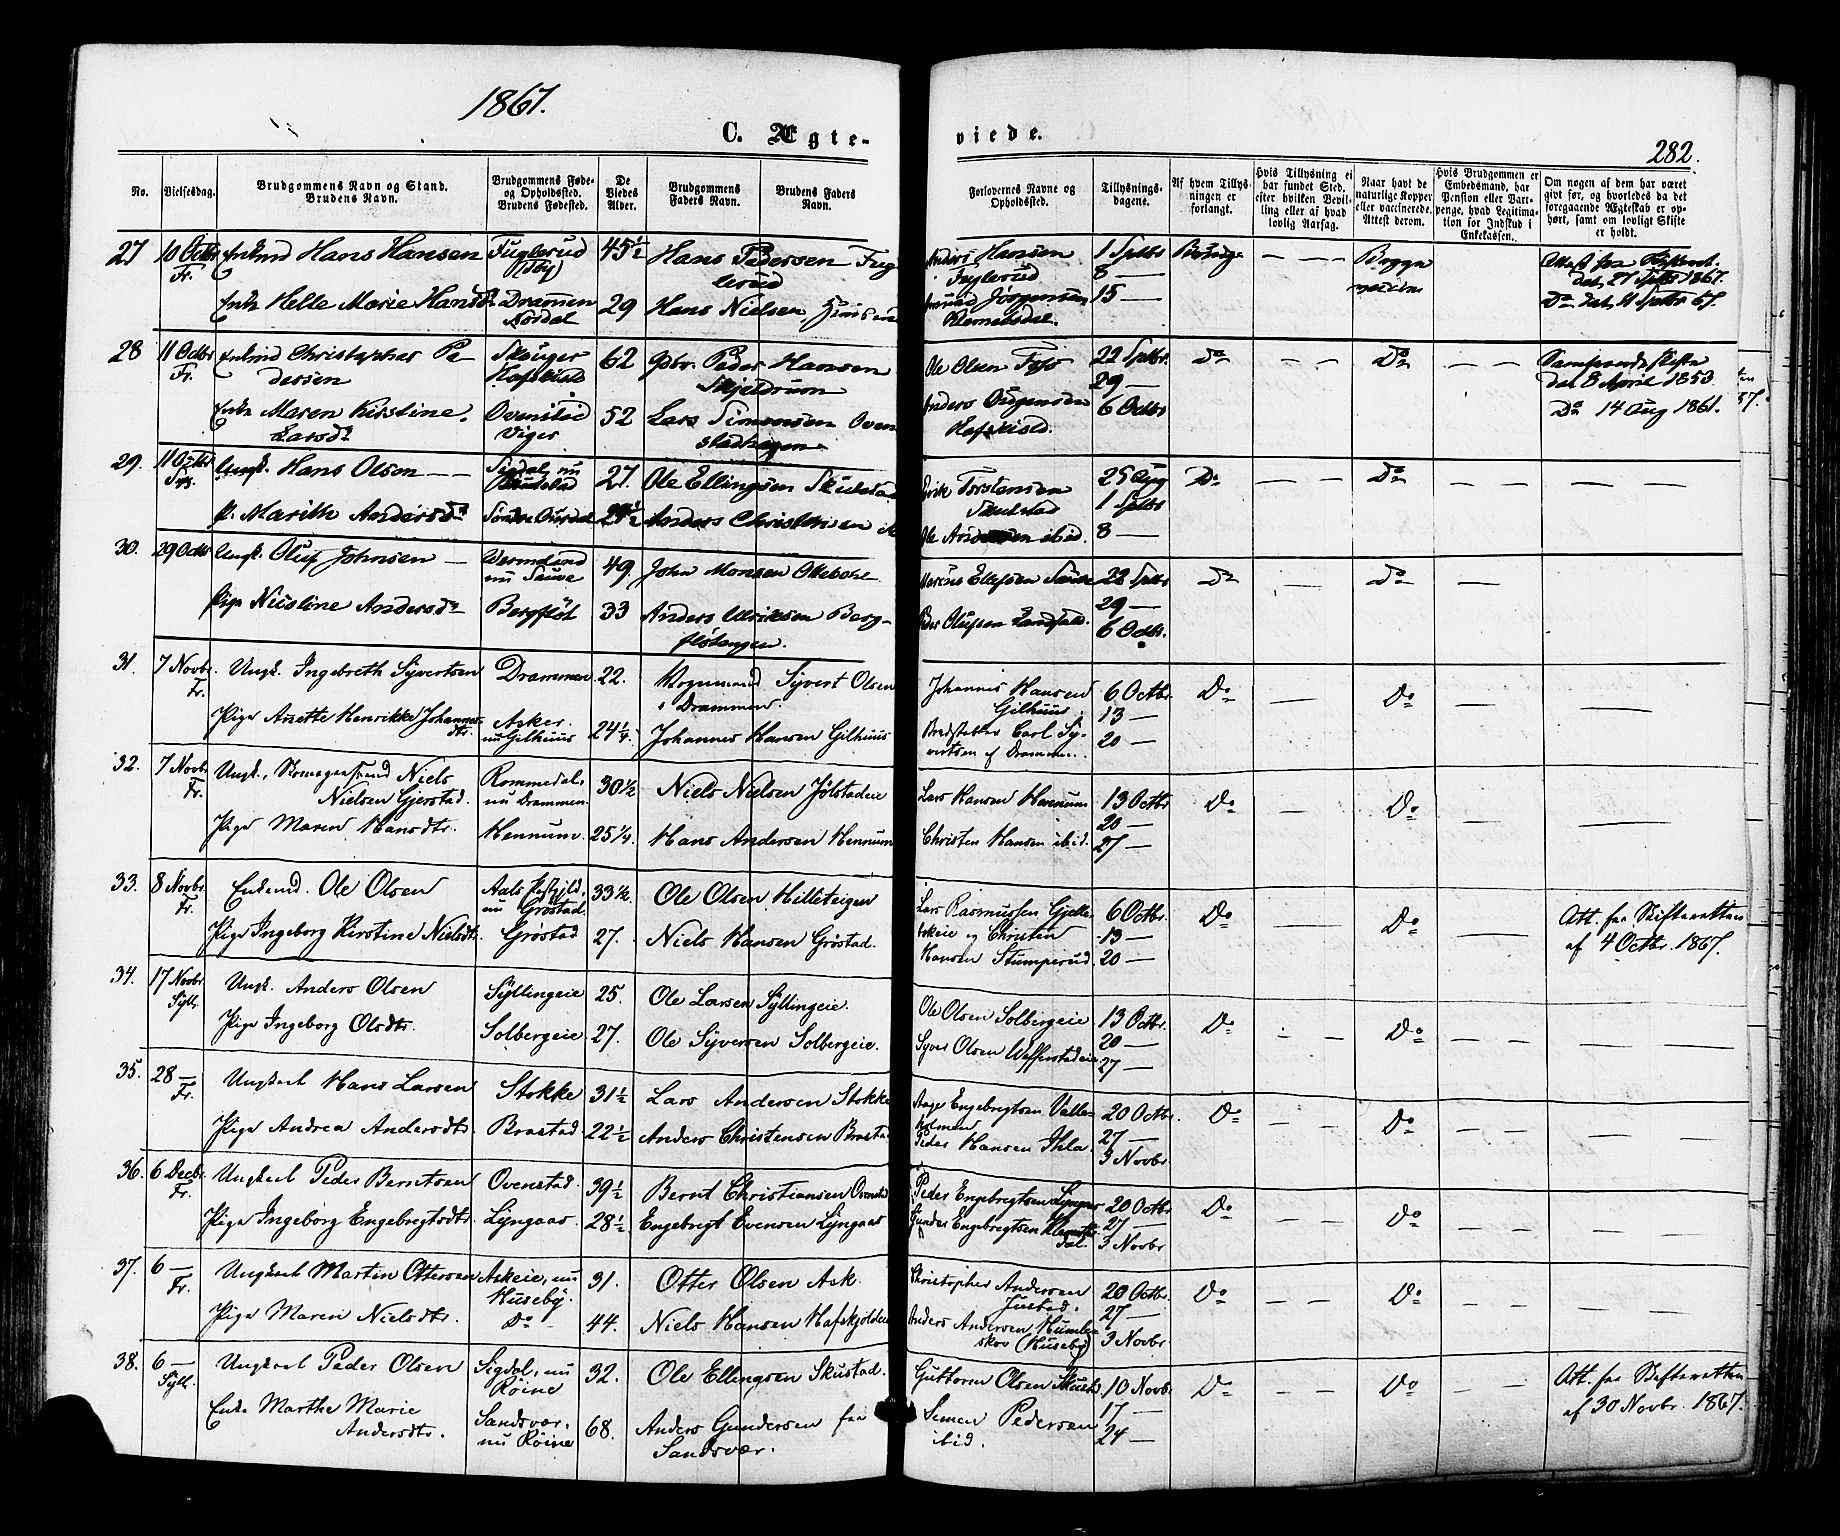 1867.
C. Ægte-
viede.
282.
No.
Vielsesdag.
Brudgommens Navn og Stand.
Brudens Navn.
Brudgommens Føde-
og Opholdssted.
Brudens Fødested.
De
Viedes
Alder.
Brudgommens
Faders Navn.
Brudens Faders
Navn.
Forlovernes Navne og
Opholdssted.
Tillysnings-
dagene.
Af hvem Tillys-
ningen er
forlangt.
Hvis Tillysning ei
har fundet Sted,
efter hvilken Bevil-
ling eller af hvad
lovlig Aarsag.
Naar havt de
naturlige Kopper
eller vaccinerede.
Attest derom.
Hvis Brudgommen er
Embedsmand, har
Pension eller Vart-
penge, hvad Legitima-
tion for Indskud i
Enkekassen.
Om nogen af dem har været
gift før, og hvorledes da det
foregaaende Ægteskab er op-
hørt, samt om lovligt Skifte
er holdt.
27 10 Octbr Enkmd Hans Hansen Fuglerud 45½ Hans Pedersen Fug
Fr. lerud
Enke Helle Marie Hansd. Drammen 29 Hans Nielsen
Anders Hansen 1 Septbr
Fuglerud 8 —
Jørgensen 15 —
28 11 Octbr Enkmd Christopher Pe- 62 Gbr. Peder Hansen
Fr. dersen Skjeldrum
Enke Maren Kirstine Ovenstad 52 Lars Simensen Oven
Larsd. Viger stadhagen
Ole Olsen 22 Septbr. Do Do Samfrændeskifte
29 — dat. 8 April 1853.
Anders 6 Octbr Do 14 Aug 1861.
29. 11 Octbr Ungk. Hans Olsen — — Sigdal, nu 27. Ole Ellingsen Skustad
P. Marith Andersd. 29½ Anders Christensen
Erik Torstensen 25 Aug Do Do
Skustad 1 Septbr
Ole Andersen ibid. 8 —
30. 29 Octbr Ungk. Oluf Johnsen — Wermeland 49. John Monsen
nu Sauve
Pige Nicoline Andersd. Bergfløt 33 Anders Ulriksen Berg-
fløtangen.
Marcus Ellefsen 22 Septbr Do Do
29 —
Peder Olufsen 6 Octbr.
31. 7 Novbr. Ungk. Ingebreth Syvertsen Drammen 22. Syvert Olsen
Fr. i Drammen.
Pige Anette Henrikke Johannes- Asker. 24¼. Johannes Hansen Gilhuus
dtr. nu Gilhuus
Johannes Hansen 6 Octbr. Do Do
Gilhuus 13 —
Carl Sy- 20 —
vertsen af Drammen.
32. 7 Novbr Ungk., Niels Rommedal, 30½ Niels Nielsen Jølstadeie
Fr. Nielsen Gjerstad. nu Drammen.
Pige Maren Hansdtr. Hennum. 25¼. Hans Andersen Hennum
Lars Hansen Hennum 13 Octbr Do Do
20 —
Christen Hansen ibid. 27 —
33. 8 Novbr. Enkemd. Ole Olsen Aals Pstgjld. 33½. Ole Olsen Hilleteigen
Fr. nu Gröstad.
Pige Ingeborg Kirstine Nielsdtr. Gröstad 27. Niels Hansen Gröstad.
Lars Rasmussen Gjelle- 6 Octbr. Do Do Att. fra Skifteretten
bekeie og Christen 13 — af 4 Octbr. 1867.
Hansen Stumperud 20 —
34. 17 Novbr. Ungk. Anders Olsen Syllingeie 25. Ole Larsen Syllingeie.
Syll.
Pige Ingeborg Olsdtr. Solbergeie 27. Ole Syversen Solbergeie.
Ole Olsen Solbergeie 13 Octbr. Do Do
20 —
Syver Olsen 27 —
35. 28 — Ungkarl Hans Larsen Stokke 31½ Lars Andersen Stokke
Fr.
Pige Andrea Andersdtr. Brastad 22½ Anders Christensen Brastad
Aage Engebrigtsen Valle- 20 Octbr. Do Do
holmen 27 —
Peder Hansen Ihla. 3 Novbr
36. 6 Decbr. Ungkarl Peder Berntsen Ovenstad. 39½ Bernt Christiansen Ovenstad
Fr.
Pige Ingeborg Engebrigtsdtr. Lyngaas. 28½ Engebrigt Evensen Lyngaas
Peder Engebrigtsen Lyngaas 20 Octbr Do Do
Gunder Engebrigtsen 27 —
dal. 3 Novbr
37. 6 — Ungkarl Martin Ottersen Askeie, nu 31. Otter Olsen Ask.
Fr. Huseby.
Pige Maren Nielsdtr. Do 44. Niels Hansen Hafskjolden
Christopher Andersen 20 Octbr. Do Do
Justad. 27 —
Anders Andersen Humle-
skov (Huseby) 3 Novbr
38. 6 — Ungkarl Peder Olsen Sigdal, nu 32. Ole Ellingsen Skustad.
Syll. Röine
Enke Marthe Marie Sandsvær, 68. Anders Gundersen fra
Andersdtr. nu Röine Sandsvær.
Guttorm Olsen 10 Novbr. Do Do Att. fra Skifteretten
Simen Pedersen 17 — af 30 Novbr. 1867.
ibid. 24 —